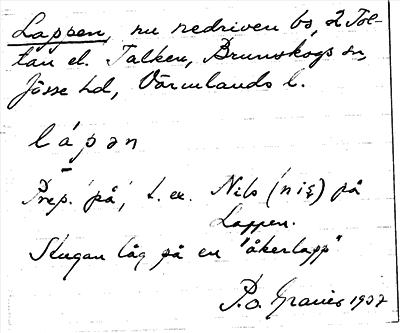 Lappen, nu nedriven bs, 2 Tol-
tan el. Talken, Brunskogs sn,
Jösse hd, Värmlands l.
lápǝn
Prep. 'på', t. ex. Nils (niʂ) på
Lappen.
Stugan låg på en "åkerlapp"
P.o. 1927